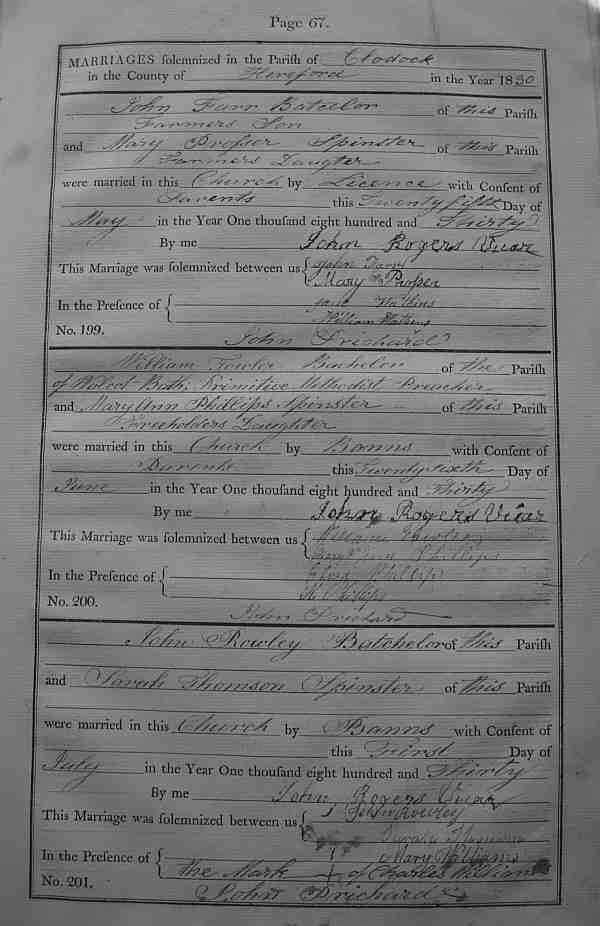 Page 67.
MARRIAGES solemnized in the Parish of Clodock
in the County of Hereford in the Year 1830
John Farr Batcelor of this Parish
Farmers Son
and Mary Prosser Spinster of this Parish
Farmers Daugter
were married in this Church by Licence with Consent of
Parents this Twenty fifth Day of
May in the Year One thousand eight hundred and Thirty
By me John Rogers Vicar
This Marriage was solemnized between us John Farr
Mary Prosser
In the Presence of Jane Watkins
William Watkins
No. 199.
John Prichard
William Fowler Bachelor of the Parish
of Walcot Bath; Primitive Methodist Preacher
and Mary Ann Phillips Spinster of this Parish
Freeholders Daughter
were married in this Church by Banns with Consent of
Parents this Twenty sixth Day of
June in the Year One thousand eight hundred and Thirty
By me John Rogers Vicar
This Marriage was solemnized between us William Fowler
Mary Ann Phillips
In the Presence of Phillips
Phillips
No. 200.
John Prichard
John Rowley Batchelor of this Parish
and Sarah Thomson Spinster of this Parish
were married in this Church by Banns with Consent of
this First Day of
July in the Year One thousand eight hundred and Thirty
By me John Rogers Vicar
This Marriage was solemnized between us John Rowley
Sarah Thomson
In the Presence of Mary Williams
The Mark of Charles Williams
No. 201.
John Prichard